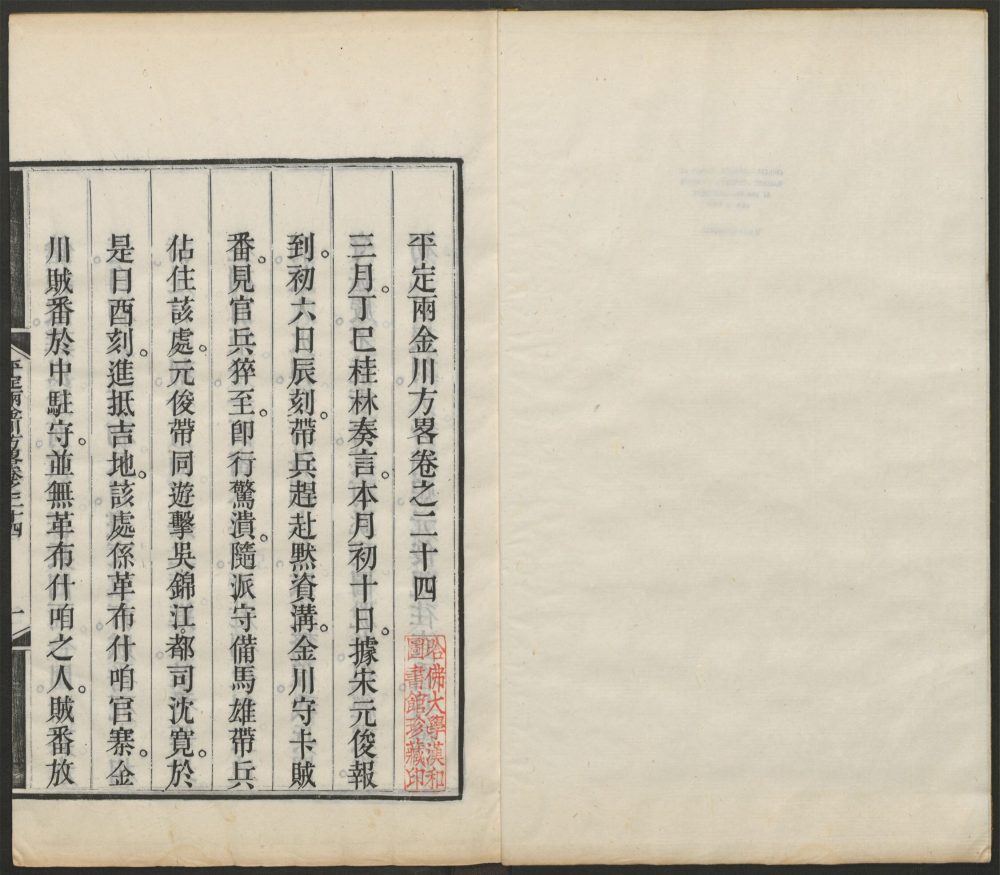 平定兩金川方畧卷之二十四
三月。丁巳桂林奏言。本月初十日。據宋元俊報
到。初六日辰刻。帶兵趕赴默資溝。金川守卡賊
番。見官兵猝至。卽行驚潰。隨派守備馬雄帶兵
佔住該處。元俊帶同遊擊吳錦江。都司沈寬。於
是日酉刻。進抵吉地。該處係革布什咱官寨。金
川賊番於中駐守。並無革布什咱之人。賊番放
平定兩金川方畧卷之二十四
一
哈佛大學漢和
圖書館珍藏印